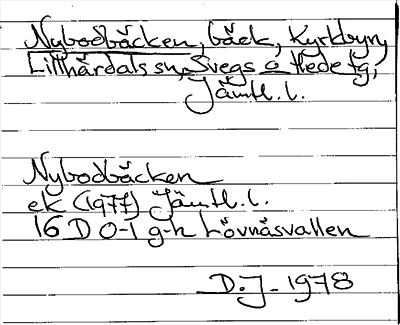 Nybodbäcken, bäck, Kyrkbyn,
Lillhärdals sn, Svegs o Hede tg,
Jämtl. l.
Nybodbäcken
ek (1977) Jämtl. l.
16 D 0-1 g-h Lövnäsvallen
D.J. 1978